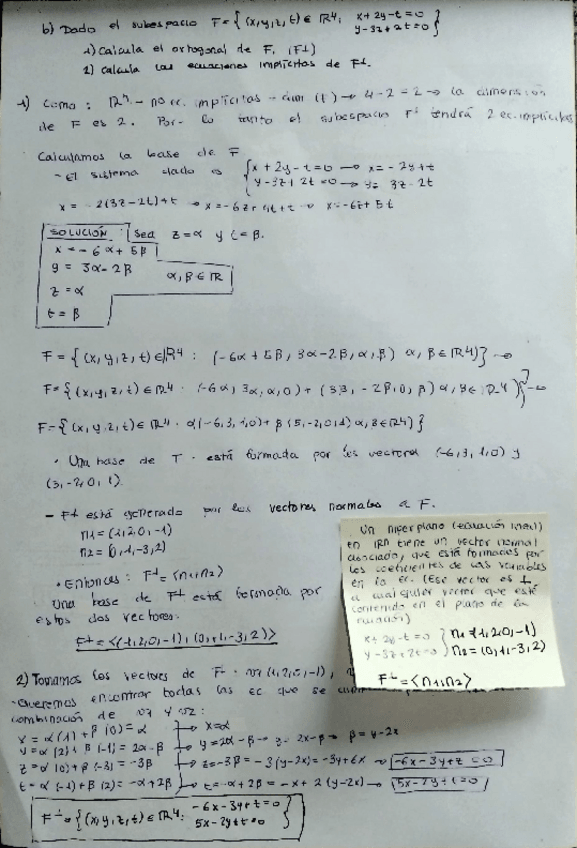 b) Dado el subespacio F = { (x,y,z,t) ∈ R4: x + 2y - t = 0
y - 3z + 2t = 0 }
1) Calcula el ortogonal de F. (F⊥)
2) Calcula las ecuaciones implícitas de F⊥.
1) Como: - no ec. implícitas - dim (F) → 4 - 2 = 2 → la dimensión
de F es 2. Por lo tanto el subespacio F⊥ tendrá 2 ec. implícitas
Calculamos la base de F
- El sistema dado es { x + 2y - t = 0 → x = - 2y + t
y - 3z + 2t = 0 → y = 3z - 2t
x = - 2(3z - 2t) + t → x = -6z + 4t + t → x = -6z + 5t
SOLUCIÓN: Sea z = α y t = β.
x = - 6α + 5β
y = 3α - 2β α, β ∈ R
z = α
t = β
F = { (x, y, z, t) ∈ R4 : (-6α + 5β, 3α - 2β, α, β) α, β ∈ R4) } →
F = { (x, y, z, t) ∈ R4 · (-6α, 3α, α, 0) + ( , - 2β, 0, β) α, β ∈ R4 ) } →
F = { (x, y, z, t) ∈ R4 · α(-6, 3, 1, 0) + β(5, -2, 0, 1) α, β ∈ R4) }
• Una base de está formada por los vectores (-6, 3, 1, 0) y
( , -2, 0, 1).
- F⊥ está generado por los vectores normales a F.
n1 = (1, 2, 0, -1)
n2 = (0, 1, -3, 2)
• Entonces: F⊥ = <n1, n2>
Una base de F⊥ está formada por
estos dos vectores:
F⊥ = <(1, 2, 0, -1), (0, 1, -3, 2)>
Un hiperplano (ecuación lineal)
en Rn tiene un vector normal
asociado, que está formados por
los coeficientes de las variables
en la ec. (Ese vector es ⊥
a cualquier vector que esté
contenido en el plano de la
ecuación)
x + 2y - t = 0 } n1 = (1, 2, 0, -1)
y - 3z + 2t = 0 } n2 = (0, 1, -3, 2)
F⊥ = <n1, n2>
2) Tomamos los vectores de F⊥: (1, 2, 0, -1),
- Queremos encontrar todas las ec que se
combinación de v1 y v2:
x = α (1) + β (0) = α → x = α
y = α (2) + β (-1) = 2α - β → y = 2α - β → = 2x - β → β = y - 2x
z = α (0) + β (-3) = -3β → z = -3β = -3 (y - 2x) = -3y + 6x → -6x - 3y + z = 0
t = α (-1) + β (2) = -α + 2β → t = -α + 2β = - x + 2 (y - 2x) → 5x - 2y + t = 0
F⊥ = { (x, y, z, t) ∈ R4: -6x - 3y + t = 0
5x - 2y + t = 0 }